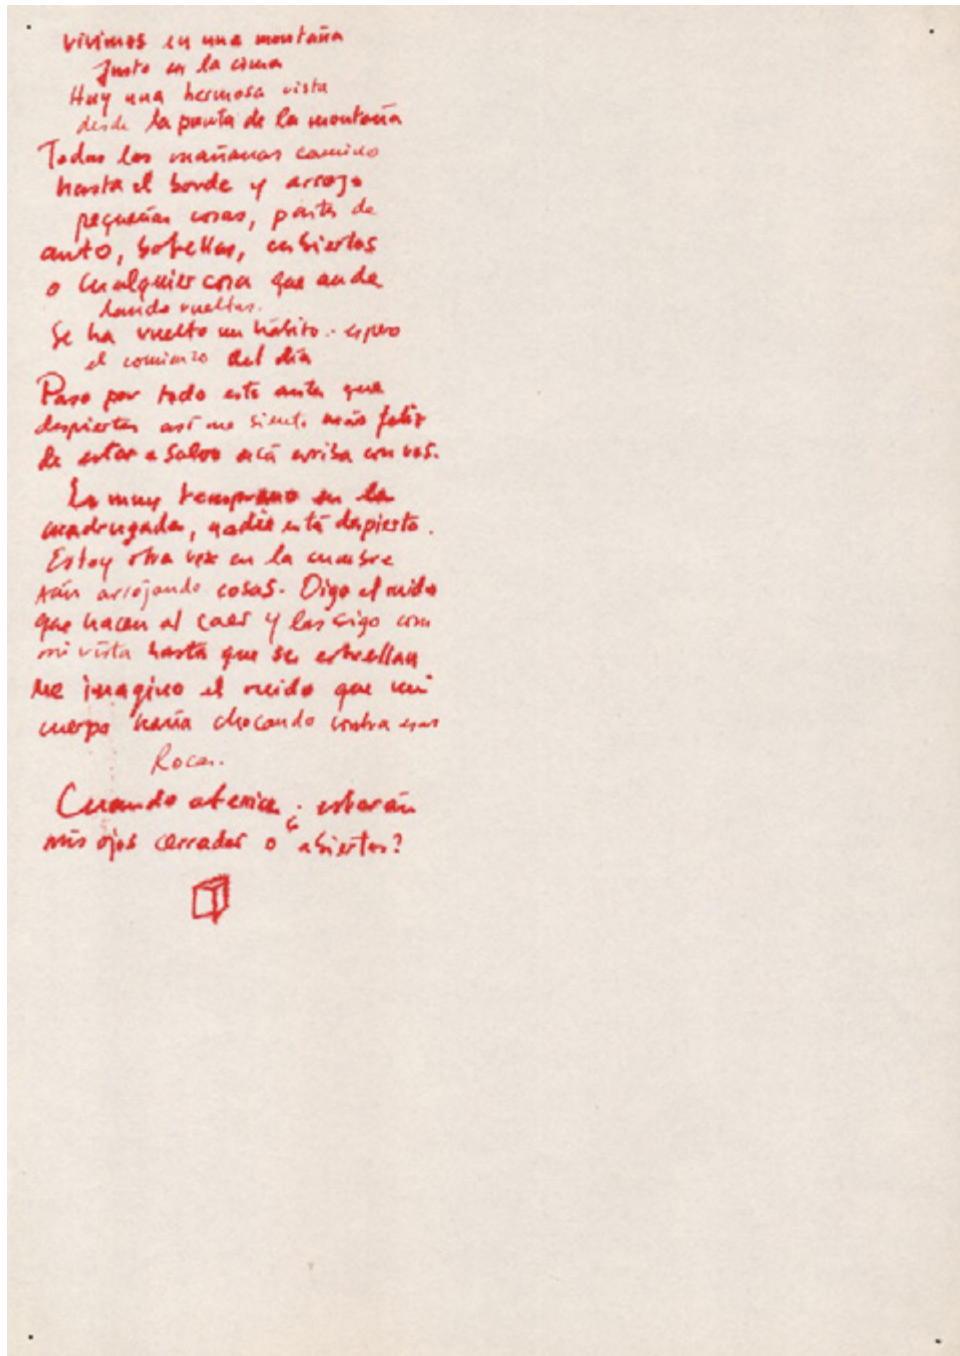 vivimos en una montaña
Justo en la cima
Hay una hermosa vista
desde la punta de la montaña
Todas las mañanas camino
hasta el borde y arrojo
pequeñas cosas, partes de
auto, botellas, cubiertos
o cualquier cosa que ande
dando vueltas.
Se ha vuelto un hábito.
el comienzo del día
Paso por todo esto antes que
despiertes así me siento más feliz
de estar a salvo acá arriba con vos.
Es muy temprano en la
madrugada, nadie está despierto.
Estoy otra vez en la cumbre
aún arrojando cosas. Oigo el ruido
que hacen al caer y las sigo con
mi vista hasta que se estrellan
Me imagino el ruido que mi
cuerpo haría chocando contra esas
Rocas.
Cuando aterrice ¿ estarán
mis ojos cerrados o abiertos?